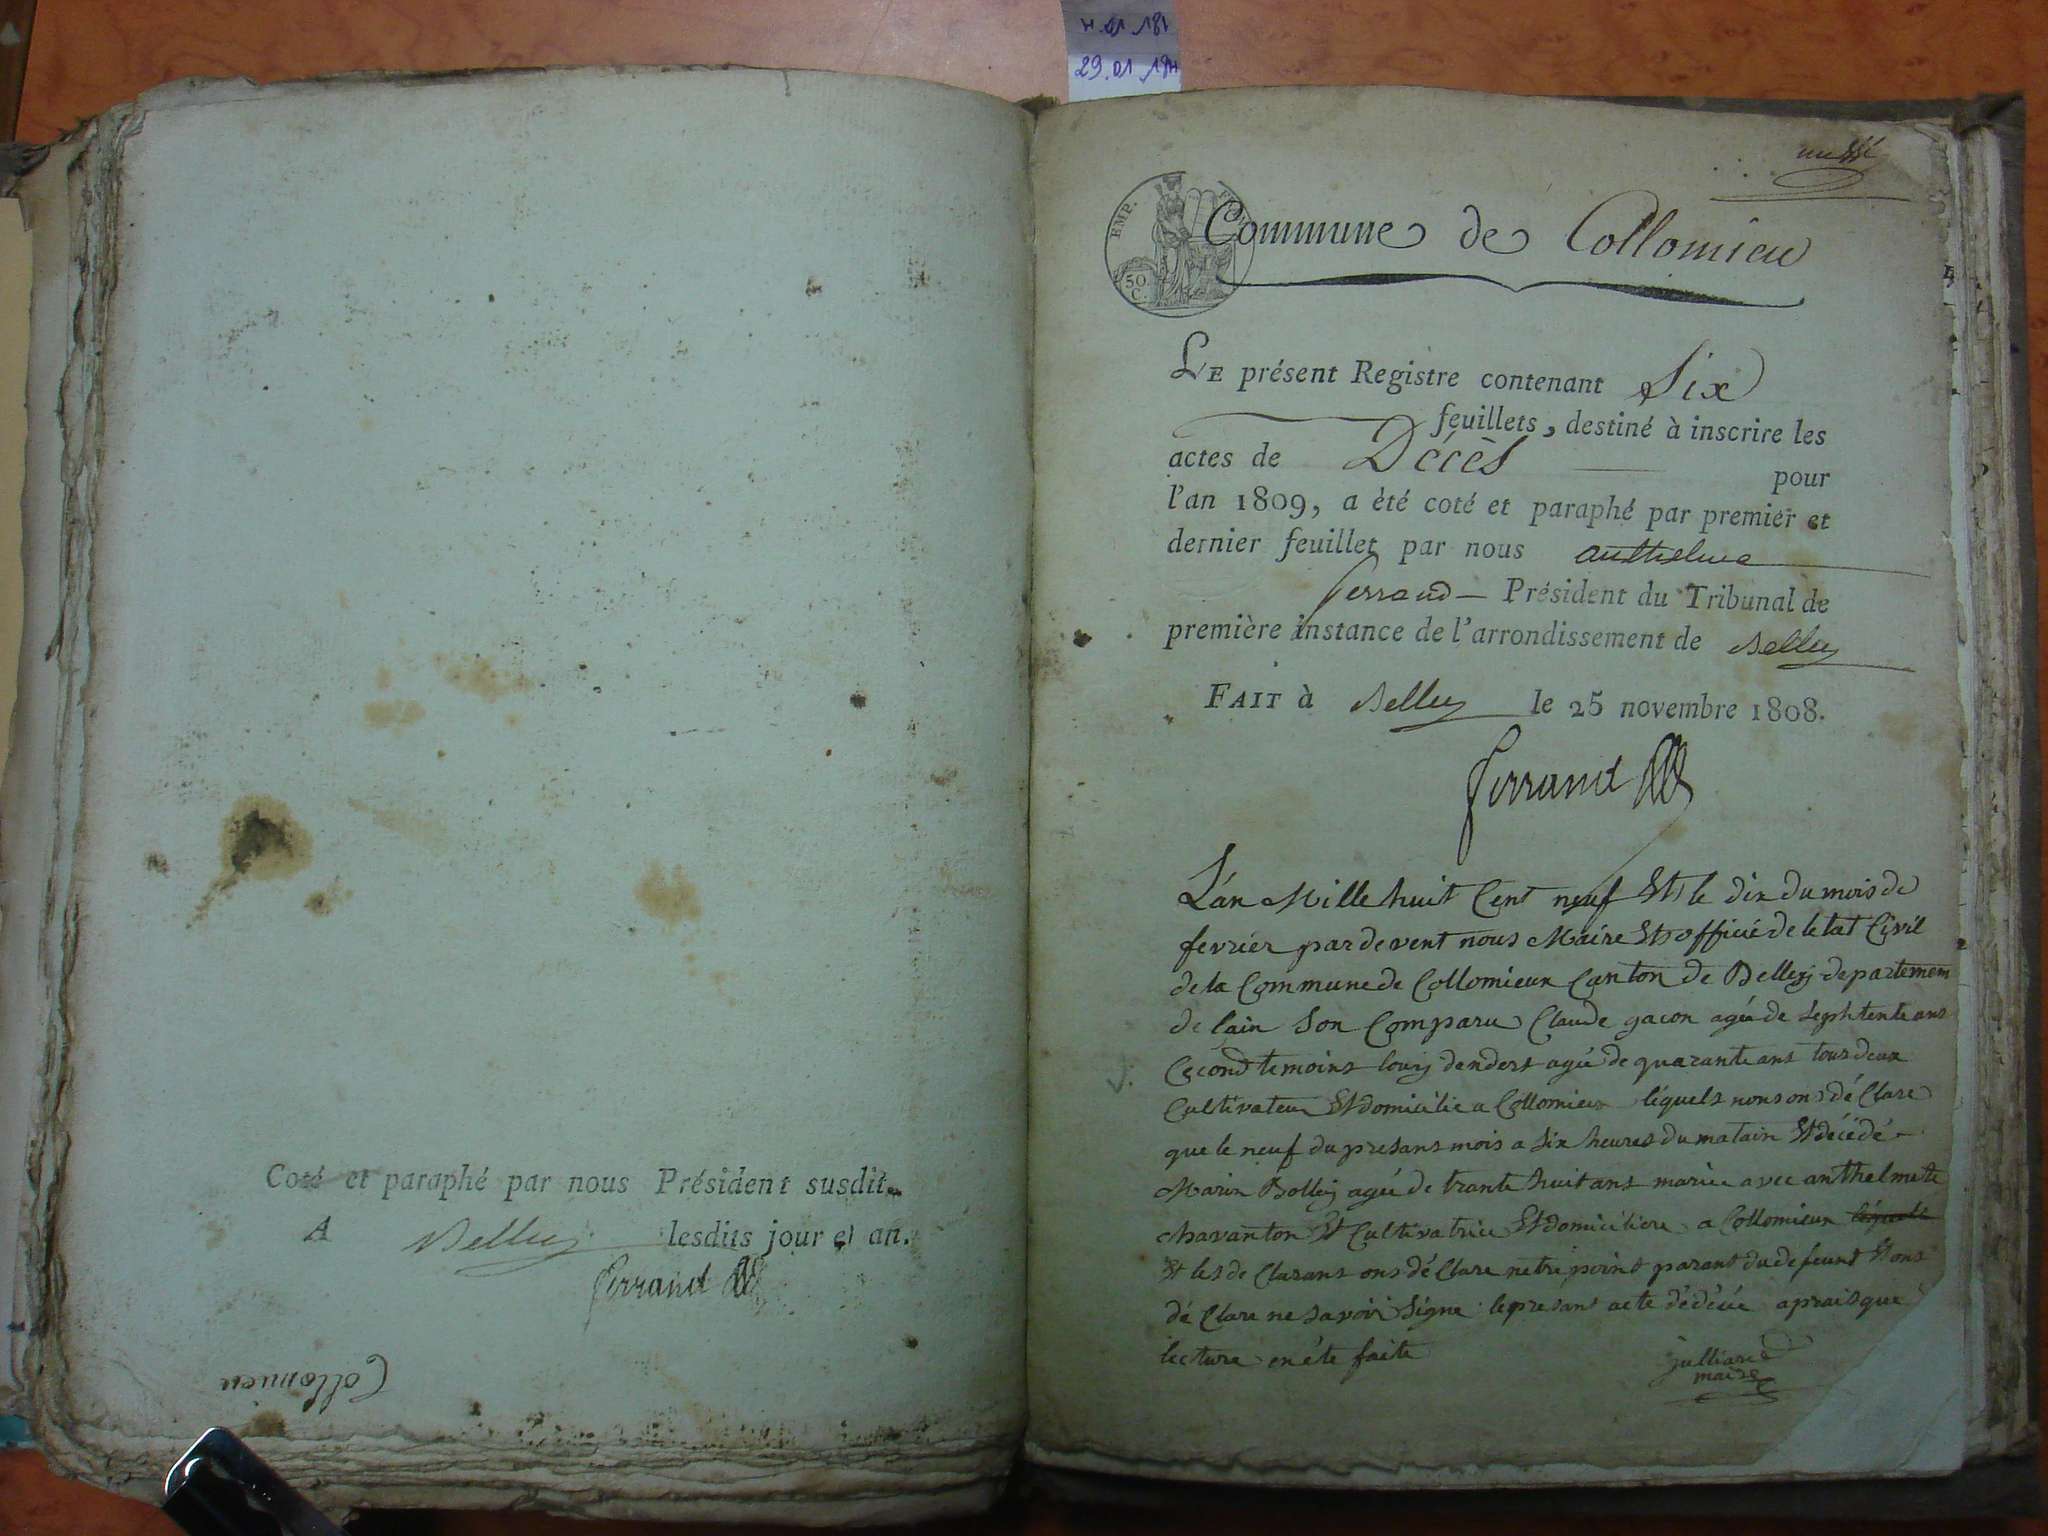 29.01.181
Coté et paraphé par nous Président susdit.
A Belley lesdits jour et an.
Ferrand
Collomieu
EMP.
50
C.
Commune de Collomieu
LE présent Registre contenant Six
feuillets, destiné à inscrire les
actes de Décès pour
l'an 1809, a èté coté et paraphé par premier et
dernier feuillet par nous anthelme
ferrand — Président du Tribunal de
première instance de l'arrondissement de Belley
FAIT à Belley le 25 novembre 1808.
ferrand
L'an Mille huit Cent neuf Et le dix du mois de
fevrier par devent nous Maire Et officié de letat Civil
de la Commune de Collomieux Canton de Belley departemen
de lain Son Comparu Claude gacon ageé de Sephtente ans
Cecond temoins louis denders ageé de quarante ans tous deux
Cultivateur Et domicilie a Collomieux léquels nons on déClare
que le neuf du presans mois a Six heures du matain Et décédé
Marin Bolley ageé de trante huit ans mariee avec anthelme te
chavanton Et Cultivatrice Et domiciliere a Collomieux léquels
Et les de Clarans ons déClare netre point parant du defeunt Et ons
dé Clare ne Savoir Signe le presant acte dédécé apraisque
lecture en éte faite
julliard
maire